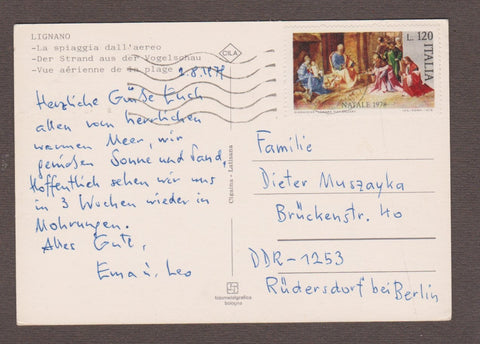 LIGNANO
-La spiaggia dall'aereo
-Der Strand aus der Vogelschau
-Vue aérienne de la plage
CILA
L. 120
ITALIA
NATALE 1978
Herzliche Grüße Euch
allen vom herrlichen
warmen Meer, wir
genießen Sonne und Sand.
Hoffentlich sehen wir uns
in 3 Wochen wieder in
Mohrungen.
Alles Gute,
Erna u. Leo
Familie
Dieter Muszayka
Brückenstr. 40
DDR-1253
Rüdersdorf bei Berlin
Cigaina - Latisana
bologna